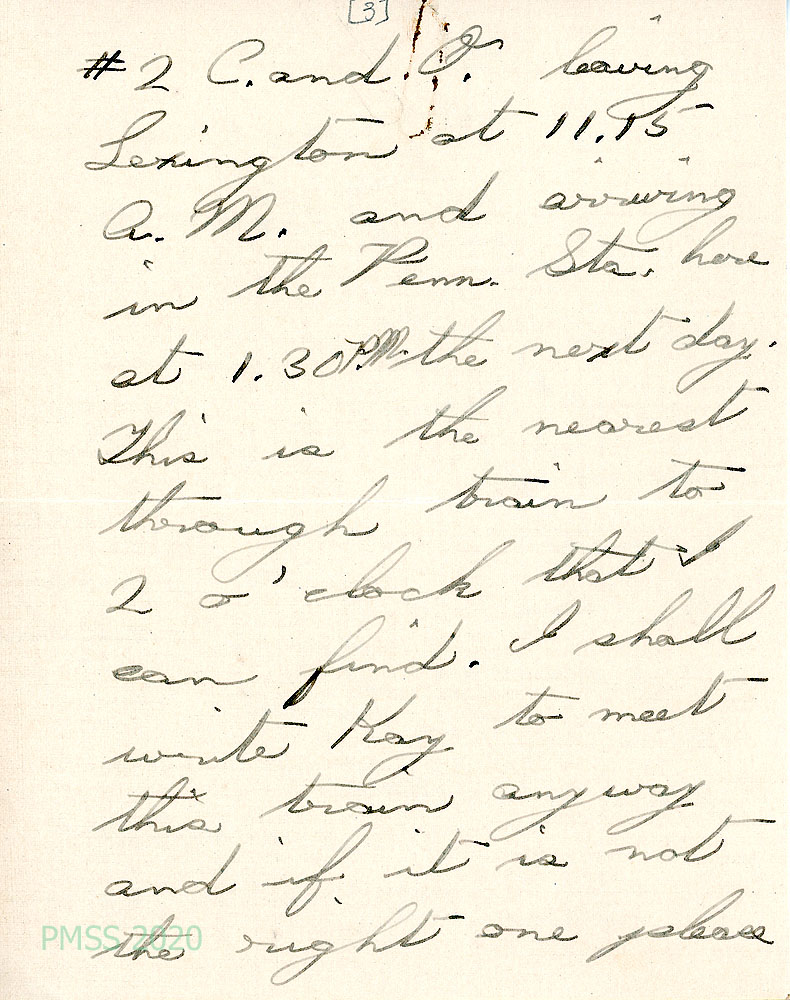 [3]
#2 C. and O. leaving
Lexington at 11.15
A.M. and arriving
in the Penn. Sta. here
at 1.30 P.M. the next day.
This is the nearest
through train to
2 o'clock that I
can find. I shall
write Kay to meet
this train anyway
and if it is not
the right one please
PMSS 2020